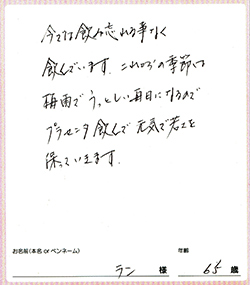 今では飲み忘れる事なく
飲んでいます。これからの季節は
梅雨でうっとしい毎日になるので
プラセンタ飲んで元気で若さを
保っていきます。
お名前(本名 or ペンネーム) 年齢
ラン 様 65 歳